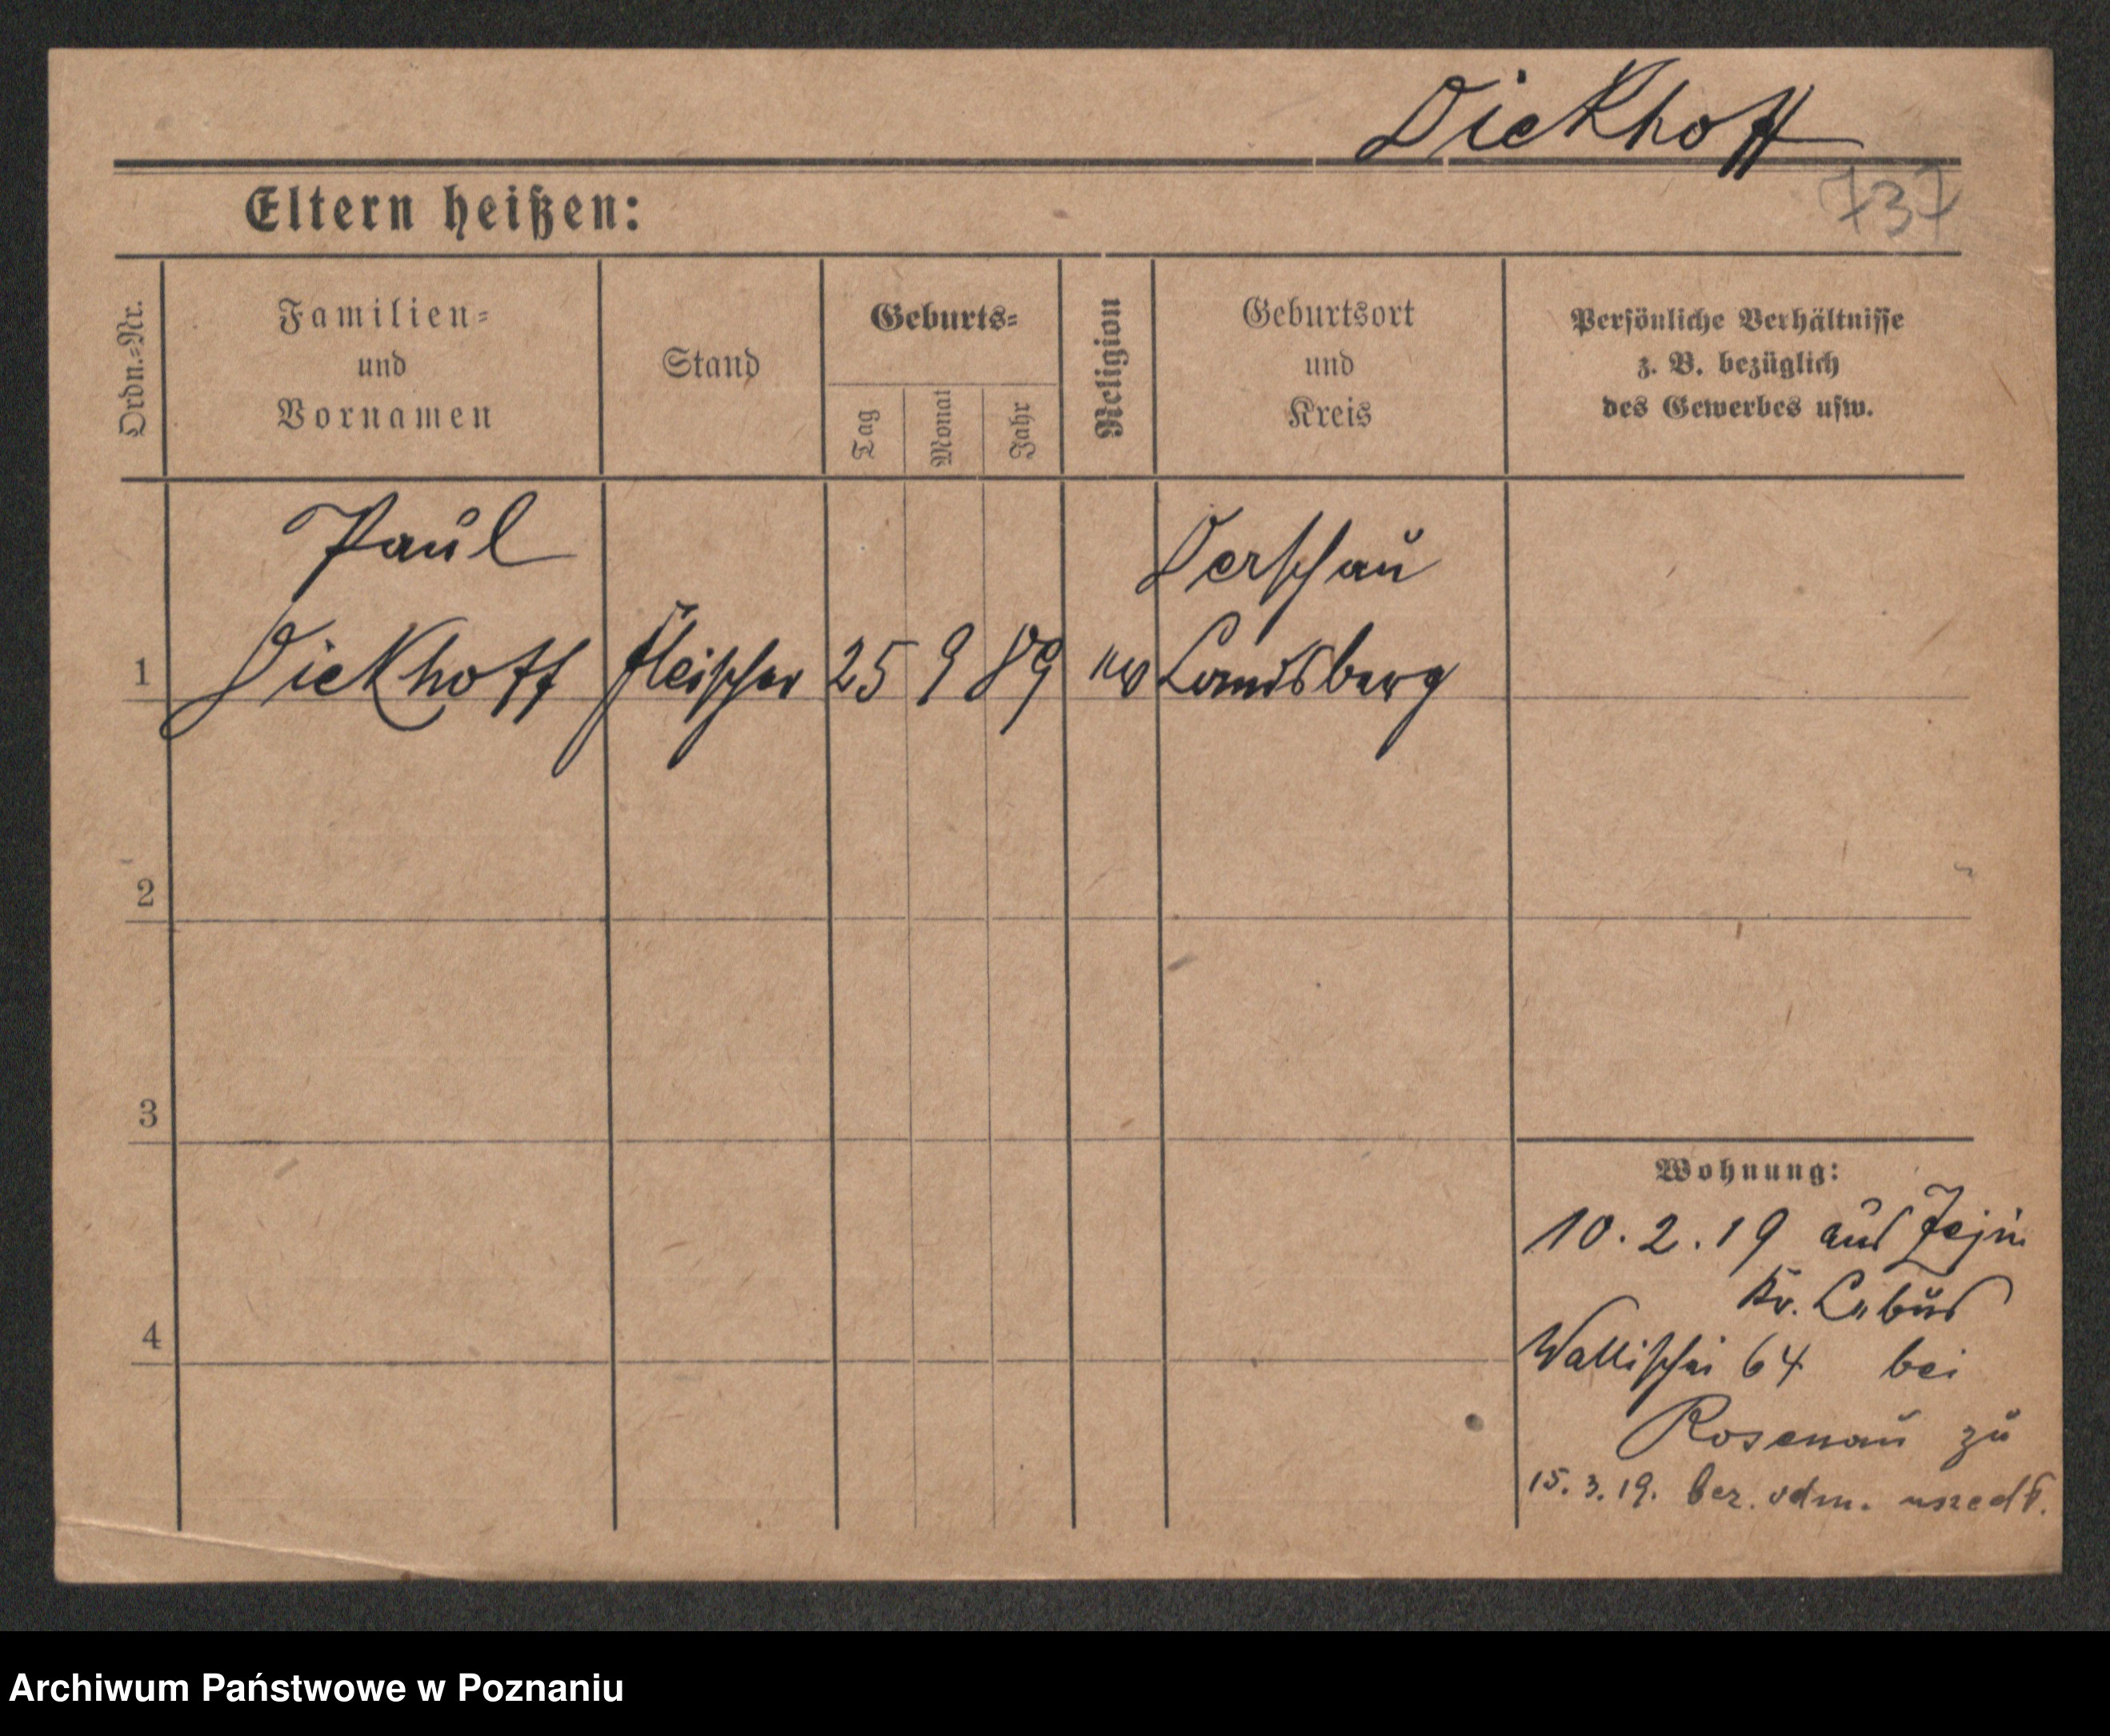 Dickhoff
737
Eltern heißen:
Ordn.=Nr.
Familien=
und
Vornamen
Stand
Geburts=
Tag
Monat
Jahr
Religion
Geburtsort
und
Kreis
Persönliche Verhältnisse
z. B. bezüglich
des Gewerbes usw.
Paul
Derschau
1 Dickhoff Fleischer 25 9 89 ev Landsberg
2
3
4
Wohnung:
10.2.19 aus
Kr. Lebus
Wallischei 64 bei
Rosenau zu
15.3.19.
Archiwum Państwowe w Poznaniu